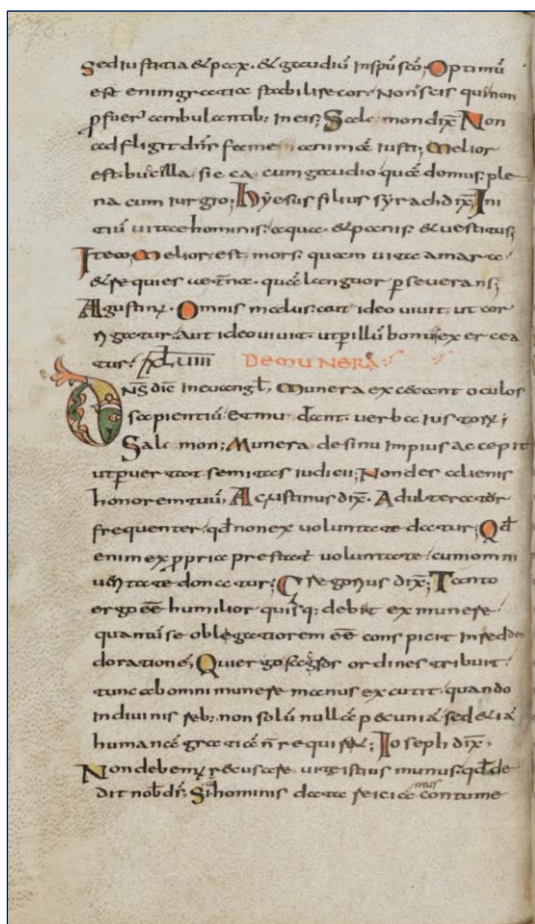 76
Sed iustitia & pax. & gaudiū in spū scō; Optimū
est enim gratia stabilire cor. Non scis qui non
ꝑfuer̄ ambulantib; in eis; Salamon dix̄. Non
adfligit dn̄s fame animā iusti; Melior
est. bucella sicca cum gaudio quā domus. ple
na cum iurgio; Hyesus filius syrach dix̄. Ini
tiū uitae hominis. aqua. & panis. & uestitus;
Item; Melior. est. mors. quam uita amara
& requies aet̄na. quā languor ꝑseuerans;
Agustinꝰ. Omnis malus. aut ideo uiuit. ut cor
rigatur. aut ideo uiuit. ut ꝑ illū bonus exercea
tur; XLVIIII DE MUNERA
Dn̄s dic̄ in euangl̄. Munera excaecant oculos
sapientiū et mutant. uerba iustorꝝ;
Salamon; Munera de sinu impius accepit
ut puertat semitas iudicii; Non des alienis
honorem tuū; Agustinus dix̄. Adulteratur
frequenter. qd̄ non ex uoluntate datur; Qd̄
enim ex ꝓpria prestat uoluntate cum omni
ueritate donatur; Gregorius dix̄; Tanto
ergo eē humilior quisq; debet ex munere
quantū se obligatiorem eē conspicit in redden
do ratione; Qui ergo sacros ordines tribuit.
tunc ab omni munere manus excutit. quando
in diuinis reb; non solū nullā pecuniā sed & iā
humanā gratiā n̄ requirit; Ioseph dix̄.
Non debemꝰ recusare uirgistius munus. qd̄ de
dit nob̄ dr̄. Si hominis data reicimus contume